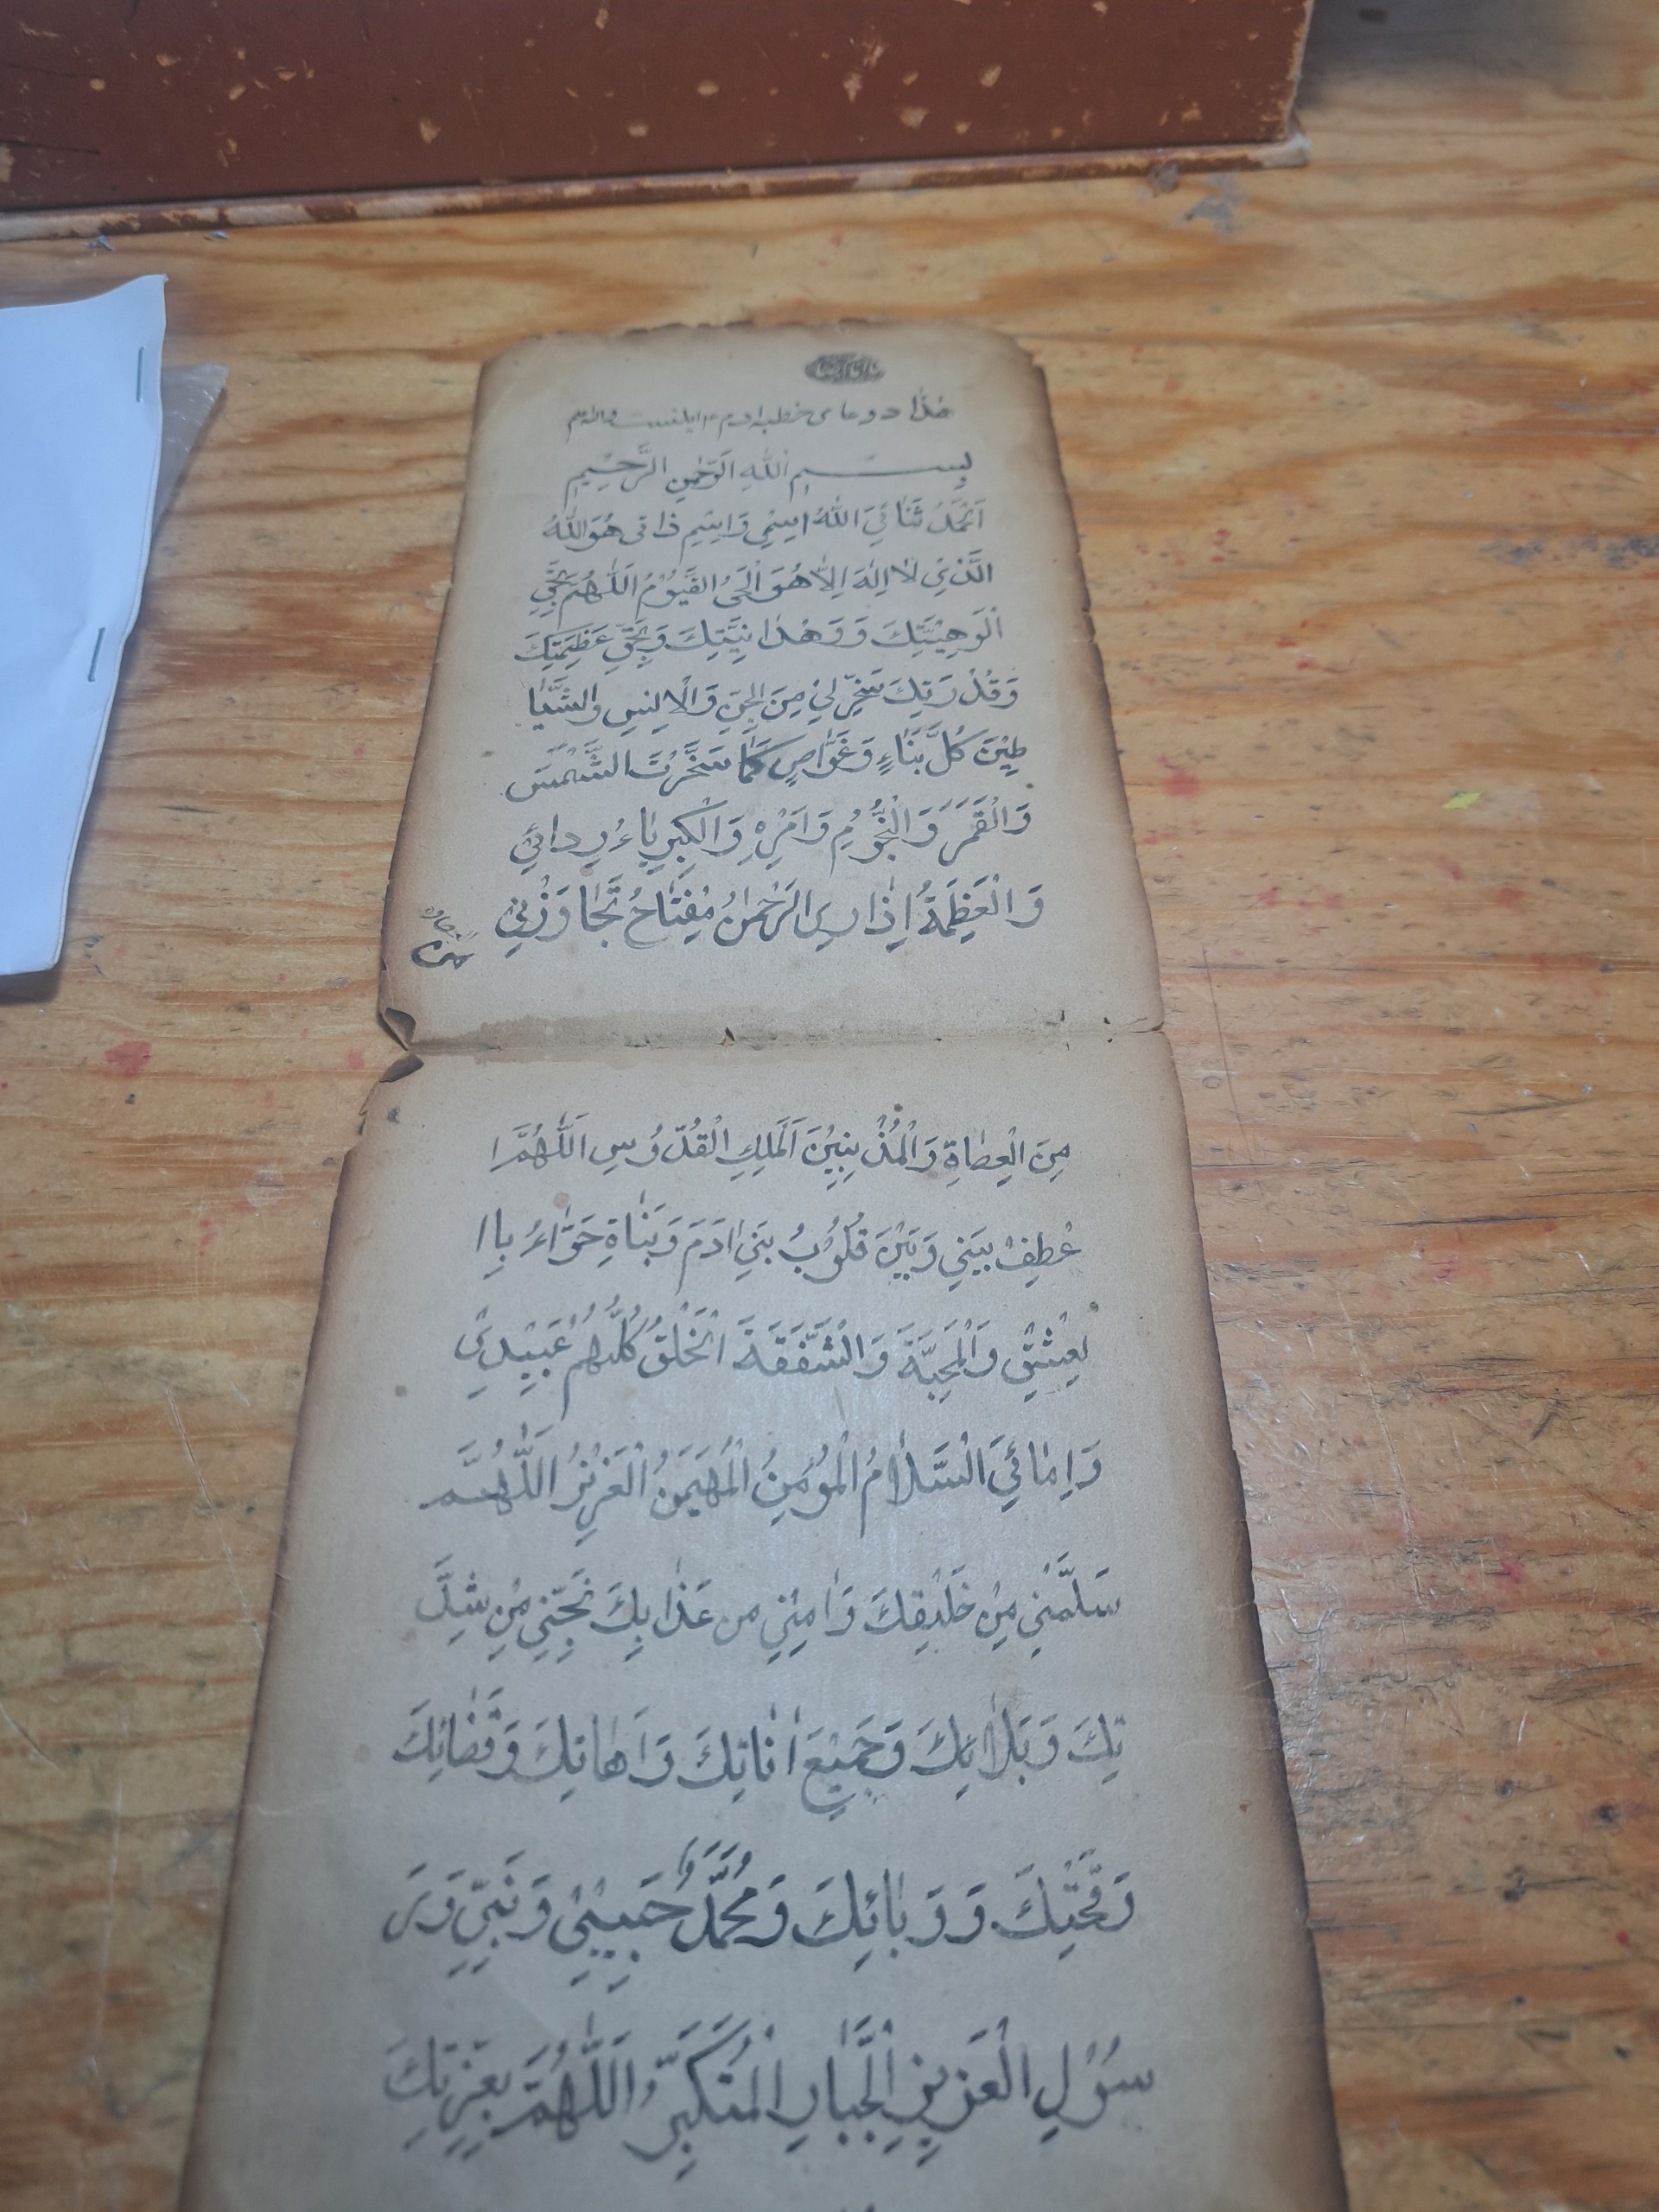 هذا دوعاى خطبه ادم
بِسْمِ اللّٰهِ الرَّحْمٰنِ الرَّحِيْمِ
اَلْحَمْدُ ثَنَائِيَ اللّٰهُ اِسِيْمِي وَاسِيْمِ ذَاتى هُوَ اللّٰهُ
الَّذِىْ لَا اِلٰهَ اِلَّا هُوَ الْحَىُّ الْقَيُّوْمُ اَللّٰهُمَّ بِحَقِّ
اُلُوهِيَّتِكَ وَ وَهْدَانِيَّتِكَ وَبِحَقِّ عَظِيْمَتِكَ
وَقُدْرَتِكَ سَخِّرْ لِيْ مِنَ الْجِنِّ وَالْاِنِسِ وَالشَّيَا
طِيْنَ كُلَّ بَنَّاءٍ وَغَوَّاصٍ كَمَا سَخَّرْتَ الشَّمْسَ
وَالْقَمَرَ وَالنُّجُوْمِ وَاَمْرِهِ وَالْكِبْرِيَاءُ رِدَائِي
وَالْعَظِمَةُ اِذَارِى الرَّحْمٰنُ مِفْتَاحُ تَجَاوَزْنِي
مِنَ الْعِصَاةِ وَالْمُذْنِبِيْنَ اَلْمَلِكِ الْقُدُّوْسِ اَللّٰهُمَّ ا
عْطِفْ بَيْنِي وَبَيْنَ قُلُوْبُ بَنِي اٰدَمَ وَبَنَاةِ حَوَّاءُ بِاا
لعِشْقِ وَالْمَحِبَّةَ وَالشَّفَقَةَ اَلْخَلْقُ كُلُّهُمْ عَبِيْدِىْ
وَاِمَائِيَ السَّلَامُ الْمُؤْمِنُ الْمُهَيْمَنُ الْعَزِيْزُ اَللّٰهُمَّ
سَلِّمْنِي مِنْ خَلْدِيقِكَ وَاٰمِنِّي مِن عَذَابِكَ نَجِّنِي مِنْ شِدَّ
تِكَ وَبَلَائِكَ وَجَمِيْعَ اٰفَاتِكَ وَاَهَاتِكَ وَقَضَائِكَ
وَمُحَمَّدُ حَبِيْبِيْ وَنَبِيّ وَرَ
سُوْلِ الْعَزِيْزِ الْجَبَّارِ الْمُتَكَبِّرُ اَللّٰهُمَّ بِعِزَّتِكَ